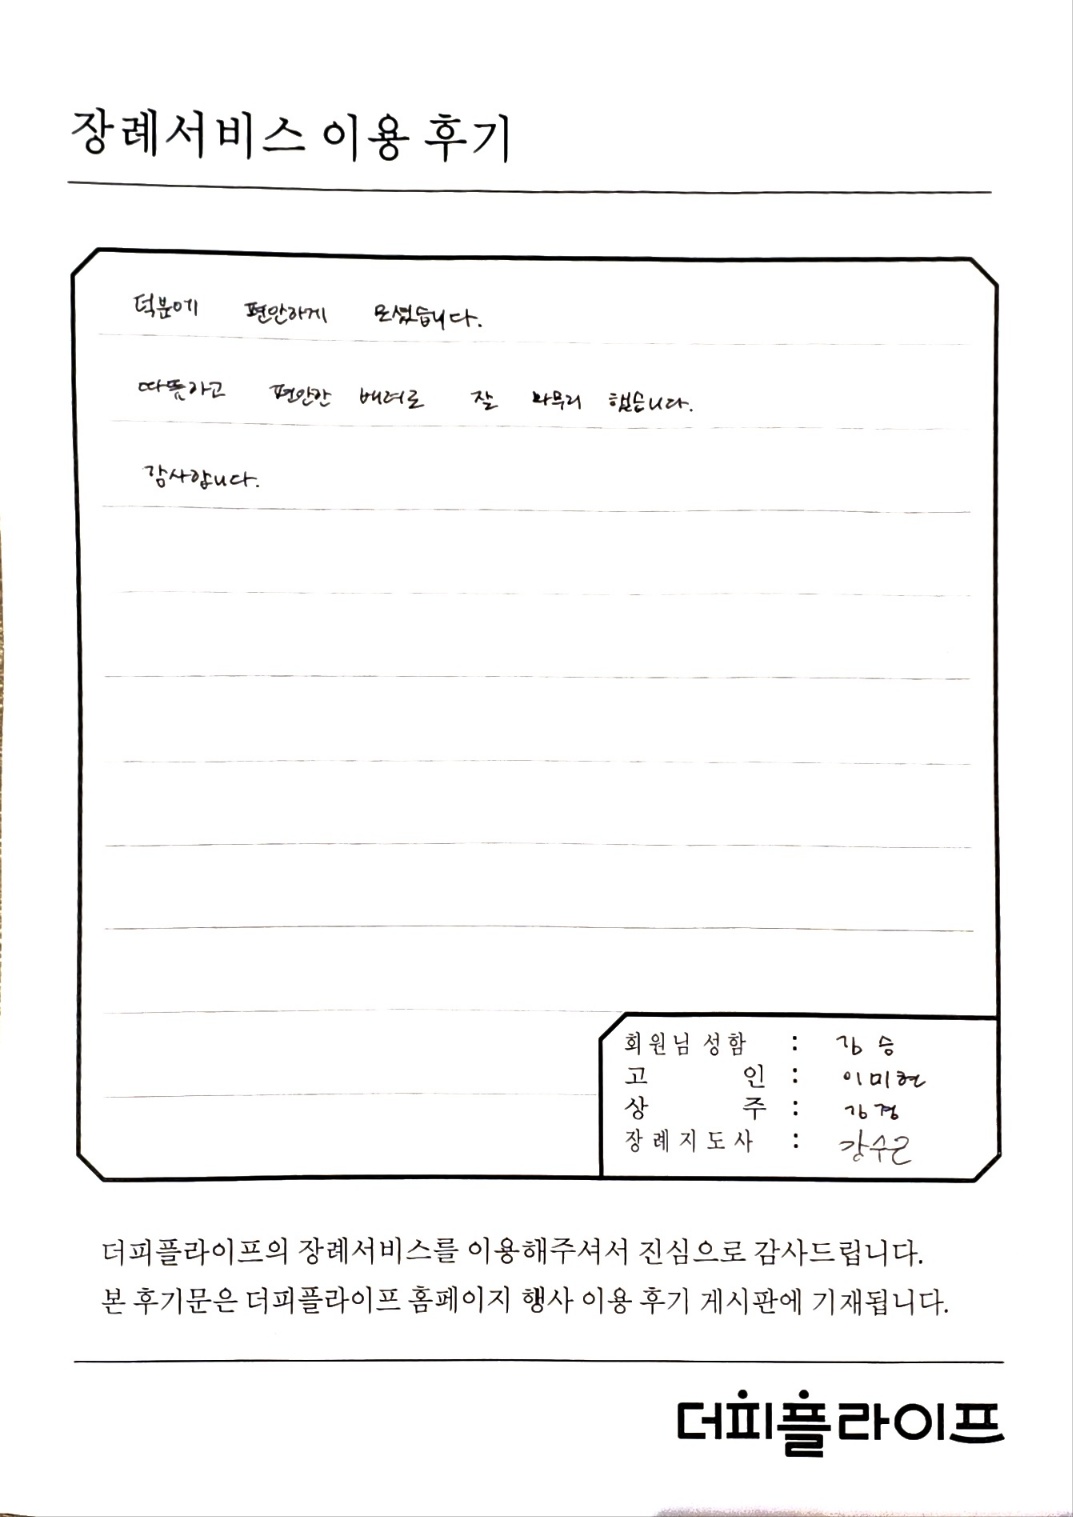 장례서비스 이용 후기
덕분에 편안하게 모셨습니다.
따뜻하고 편안한 배려로 잘 마무리 했습니다.
감사합니다.
회원님 성함 : 김 승
고 인 : 이미현
상 주 : 김경
장례지도사 : 강수근
더피플라이프의 장례서비스를 이용해주셔서 진심으로 감사드립니다.
본 후기문은 더피플라이프 홈페이지 행사 이용 후기 게시판에 기재됩니다.
더피플라이프